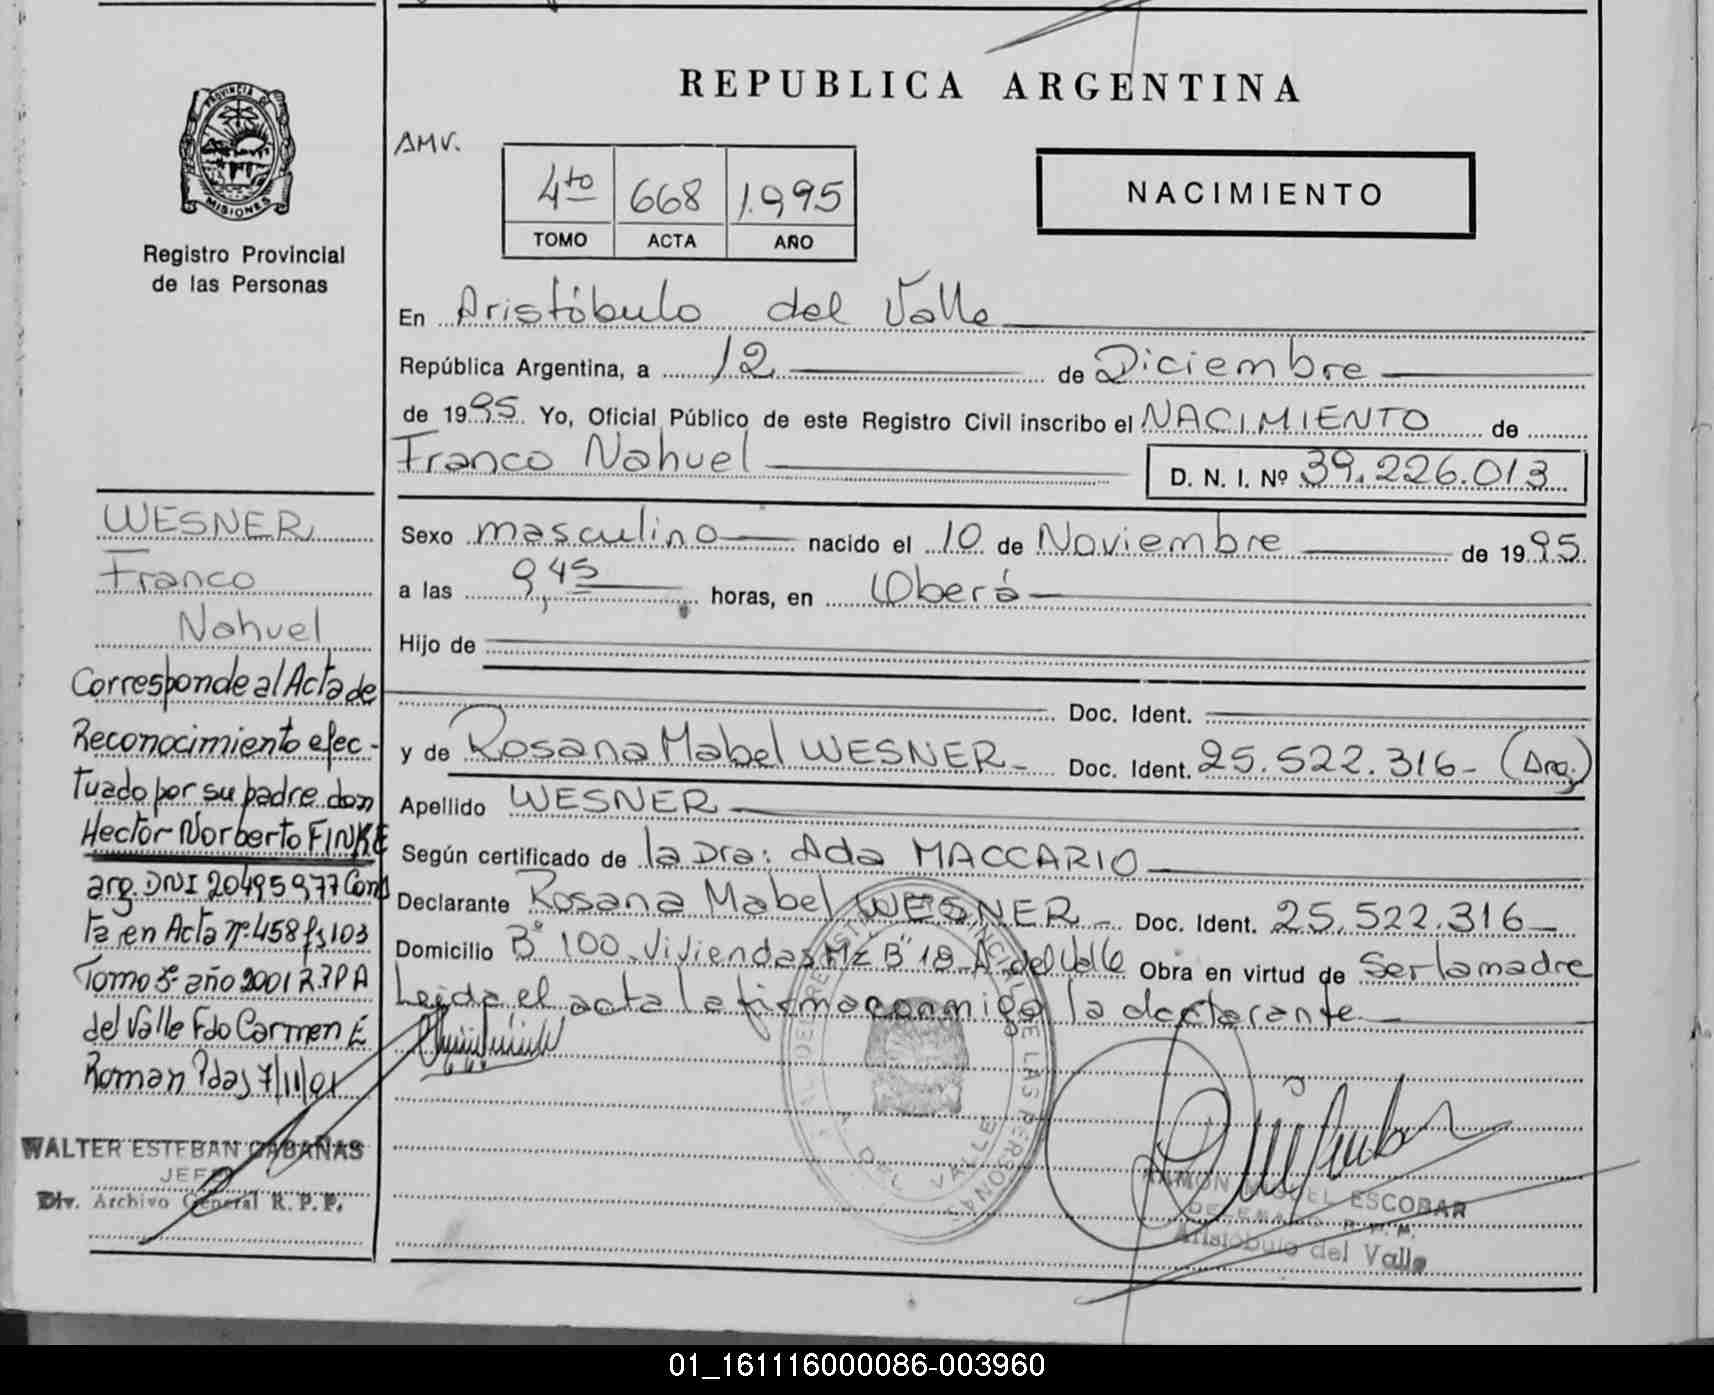 REPUBLICA ARGENTINA
PROVINCIA DE
MISIONES
Registro Provincial
de las Personas
AMV.
4to 668 1.995
TOMO ACTA AÑO
NACIMIENTO
En Aristóbulo del Valle
República Argentina, a 12 de Diciembre
de 1995 Yo, Oficial Público de este Registro Civil inscribo el NACIMIENTO de
Franco Nahuel D. N. I. Nº 39.226.013
Sexo masculino nacido el 10 de Noviembre de 1995
a las 9,45 horas, en Oberá
Hijo de
Doc. Ident.
y de Rosana Mabel WESNER- Doc. Ident. 25.522.316- (Arg.)
Apellido WESNER
Según certificado de la Dra: Ada MACCARIO
Declarante Rosana Mabel WESNER- Doc. Ident. 25.522.316-
Domicilio Bº 100 Viviendas Mz B" 18 A. del Valle Obra en virtud de Ser la madre
Leida el acta la firma conmigo la declarante
WESNER
Franco
Nahuel
Corresponde al Acta de
Reconocimiento efec-
tuado por su padre don
Hector Norberto FINKE
arg. DNI 20495977 Cons
ta en Acta nº 458 fs 103
Tomo 3º año 2001 R.P.P A
del Valle Fdo Carmen E
Roman Pdas 7/11/01
WALTER ESTEBAN CABAÑAS
JEFE
Div. Archivo General R. P. P.
DE LAS PERSONAS
A. DEL VALLE
RAMON MIGUEL ESCOBAR
R. P. P.
Aristóbulo del Valle
01_161116000086-003960